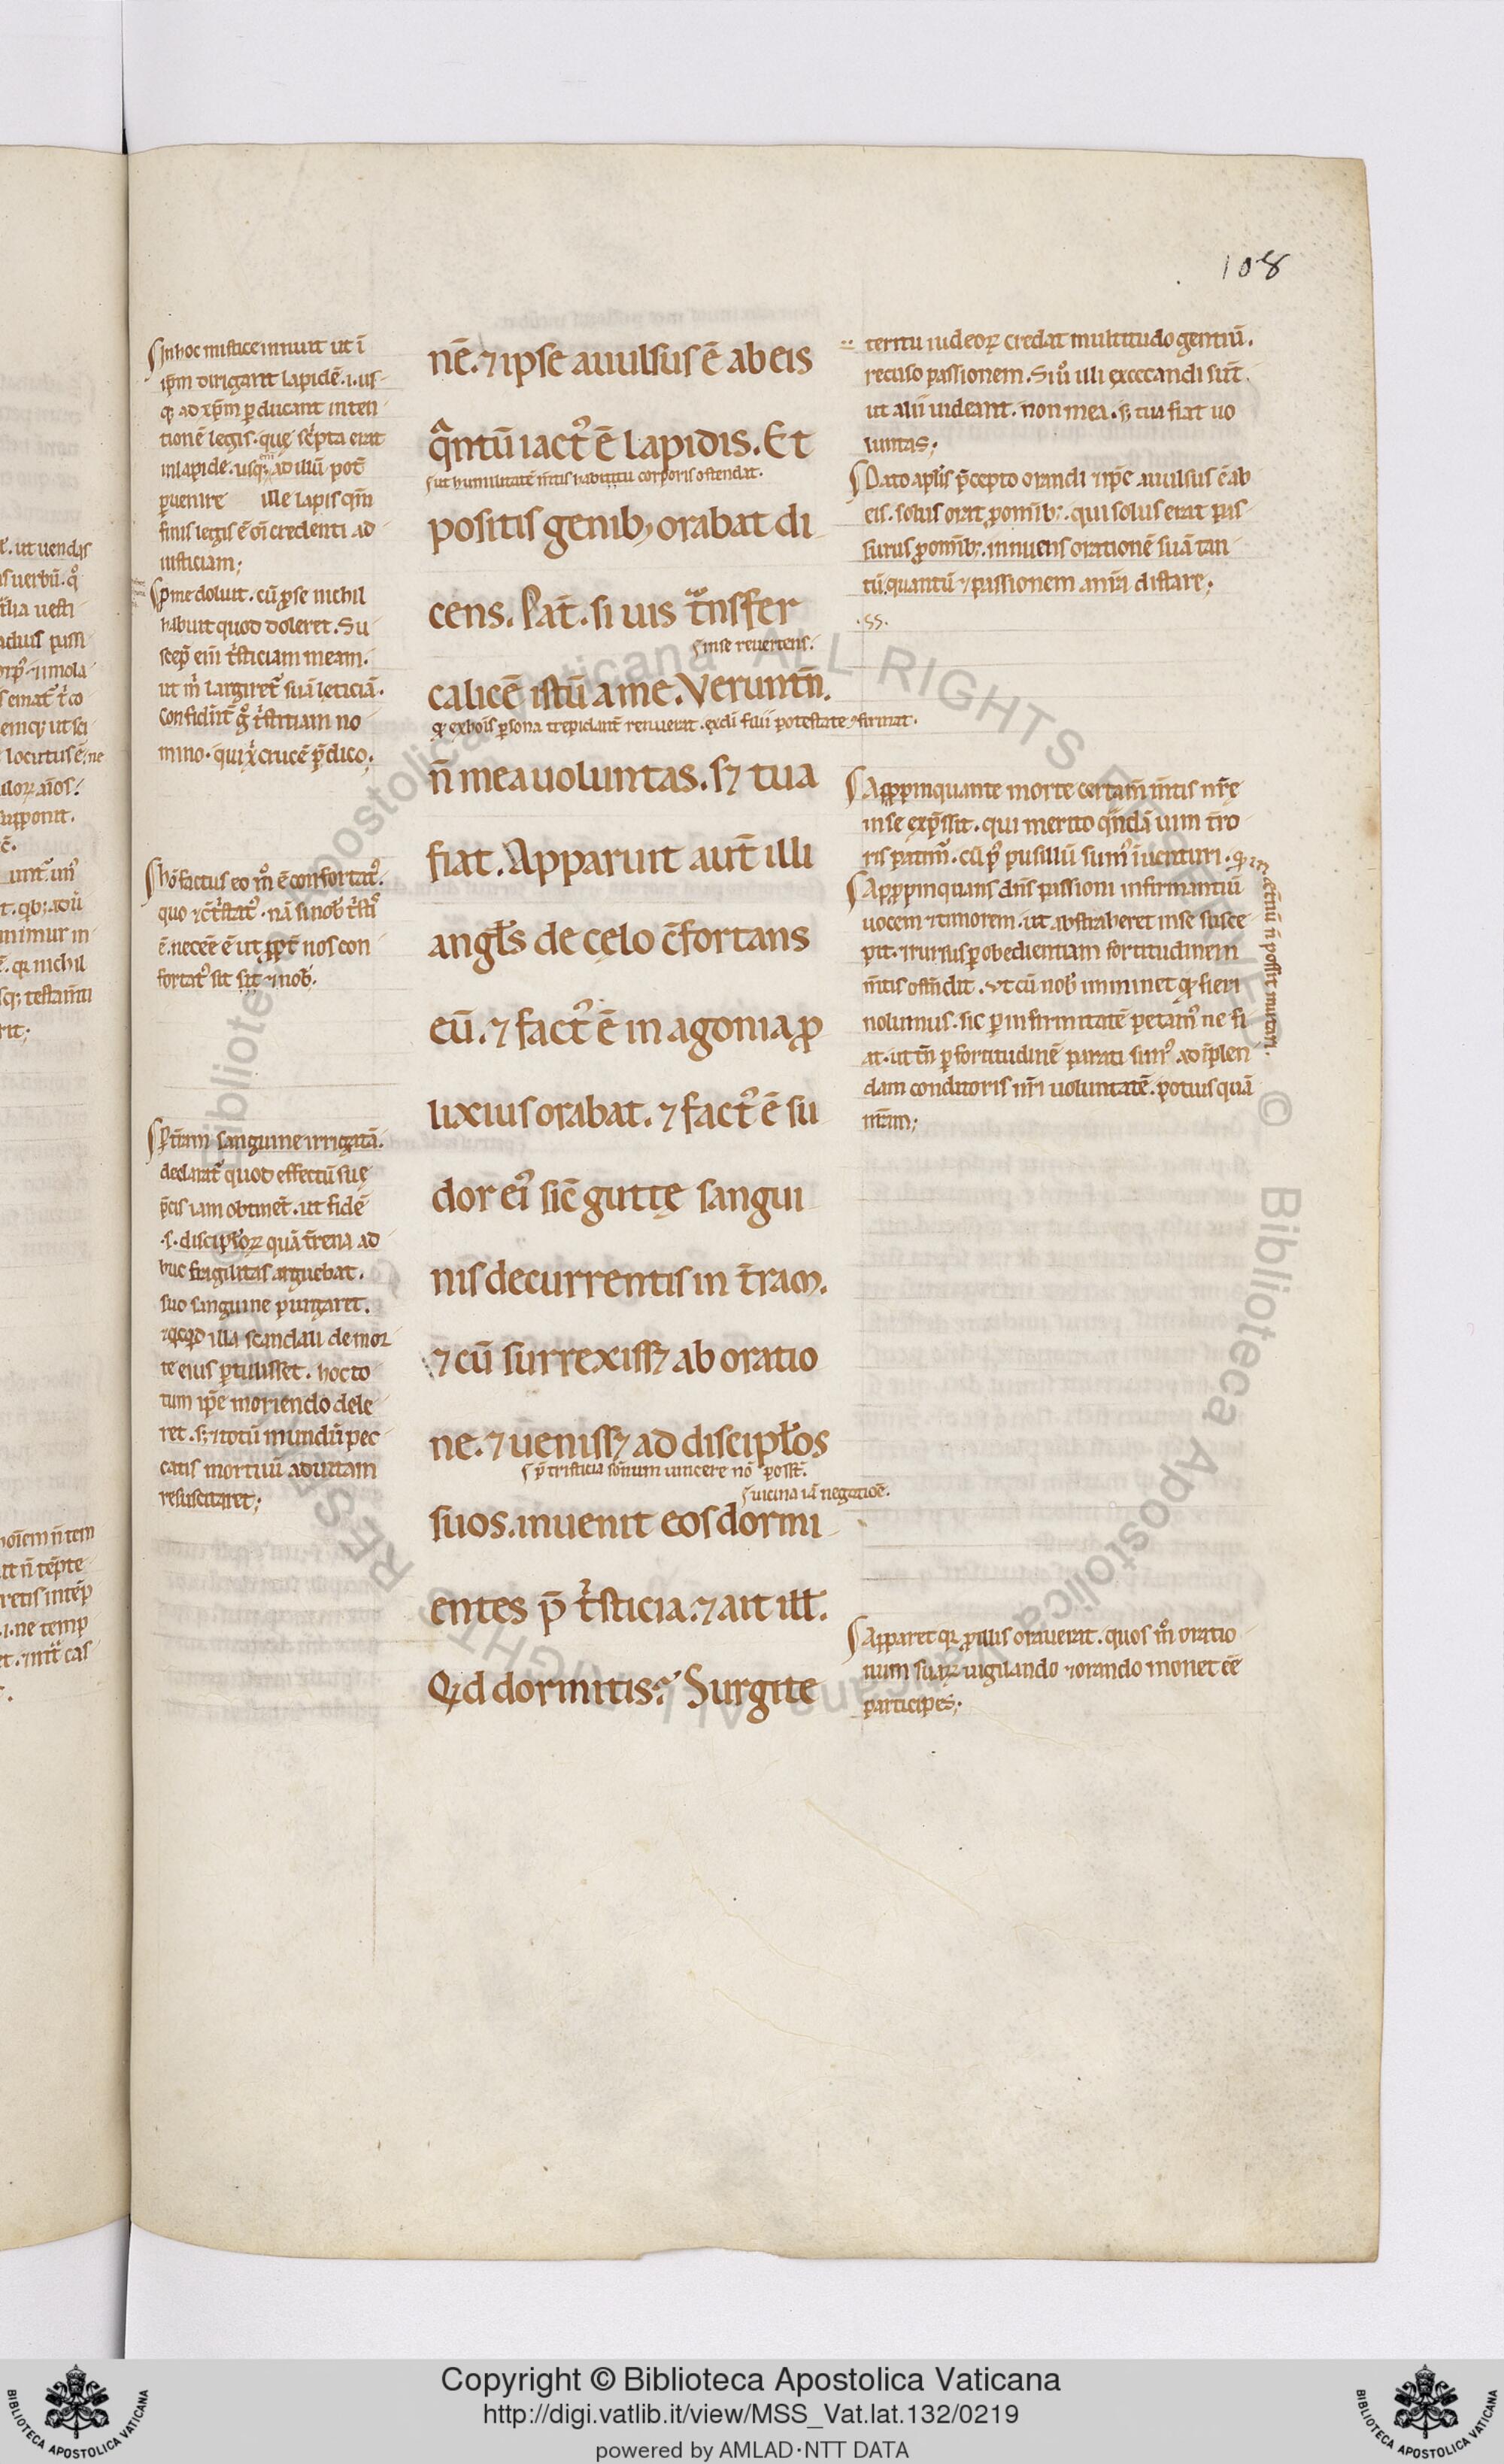 108
ſInhoc miſtice innuit ut ī
ip̄m dirigant lapidē .i. uſ
q; ad xp̄m ꝑducant inten
tionē legiſ. quę ſcͥpta erat
inlapide. uſq; ad illū pot̄
ꝑuenire ille lapiſ qm̄
finiſ legiſ ē oī credenti ad
iuſticiam;
ſꝓme doluit. cū ꝓſe nichil
habuit quod doleret. Su
ſcep̄ eni tͥſticiam meam.
ut m̄ largiret᷒ ſuā leticiā.
tͥſtitiam no
mino. qui xͥ crucē p̄dico.
ſho factuſ eo mͦ ē confortat᷒.
quo ⁊ cōtͥſtat᷒. nā ſi nob̄ tͥſtͥ
ē. necēe ē ut ꝓpt̄ noſ con
fortat᷒ ſit ſit ⁊ inob̄.
ſꝑt̄ram ſanguine irrigatā.
declarat᷒ quod effectū ſuę
p̄ciſ iam obtinet̄. ut fidē
.ſ. diſcipl̄oꝝ quā t̄rena ad
huc fragilitaſ arguebat.
ſuo ſanguine purgaret.
⁊ qͥcqͥd illa ſcandali demor
te eiuſ ꝑtuliſſet. hoc to
tum ip̄e moriendo dele
ret. ſꝫ ⁊ totū mundū pec
catiſ mortuū aduitam
reſuſcitaret;
nē. ⁊ ipſe auulſuſ ē ab eiſ
qͣntū iact᷒ ē lapidiſ. Et
ſut humilitatē m̄tiſ habitu corporiſ oſtendat.
poſitiſ genibꝫ orabat di
cenſ. Pat̄. ſi uiſ tͣnſfer
ſinſe reuertenſ.
calicē iſtū a me. Veruntn̄.
qͥ exhoīſ ꝑſona trepidant̄ renuerat. exdī filii poteſtate ꝯfirmat.
n̄ mea uoluntaſ. ſꝫ tua
fiat. Apparuit aut̄ illi
angl̄ſ de cęlo c̄fortanſ
eū. ⁊ fact᷒ ē in agonia ꝓ
lixiuſ orabat. ⁊ fact᷒ ē ſu
dor ei᷒ ſic̄ guttę ſangui
niſ decurrentiſ in t̄ram.
⁊ cū ſurrexiſſꝫ ab oratio
ne. ⁊ ueniſſꝫ ad diſcipl̄oſ
ſp̄ triſticia ſomnum uincere nō poſſt̄.
ſuicina iā negatiōe.
ſuoſ. inuenit eoſ dormi
enteſ p̄ tͥſticia. ⁊ ait ill̄.
Qͥd dormitiſ? Surgite
teritu iudeoꝝ credat multitudo gentiū.
recuſo paſſionem. Si u̾ illi excecandi ſūt.
ut alii uideant. non mea. ſꝫ tua fiat uo
luntaſ;
ſDato apl̄iſ p̄cepto orandi ⁊ ip̄e auulſuſ ē ab
eiſ. ſoluſ orat ꝓ om̄ib;. qui ſoluſ erat paſ
ſuruſ ꝓ om̄ib;. innuenſ orationē ſuā tan
tū quantū ⁊ paſſionem a nr̄a diſtare;
.SS.
ſAppropinquante morte certam̄ m̄tiſ nr̄ę
inſe exp̄ſſit. qui merito qͣndā uim t̄ro
riſ patim᷒. cū p᷒ puſillū ſum᷒ iuenturi. qͥ in
ęt̄nū n̄ poſſit mutari.
ſAppropinquanſ dn̄ſ paſſioni infirmantiū
uocem ⁊ timorem. ut abſtraheret inſe ſuſce
pit. ⁊ rurſuſ ꝑ obedientiam fortitudinem
m̄tiſ oſtn̄dit. Vt cū nob̄ imminet qͥ fieri
nolumuſ. ſic ꝑ infirmitatē petam᷒ ne fi
at. ut tn̄ ꝑ fortitudinē parati ſim᷒ ad īplen
dam conditoriſ nr̄i uoluntatē. potiuſ quā
nr̄am;
ſApparet qͥ ꝓ illiſ orauerat. quoſ m̄ oratio
num ſuaꝝ uigilando ⁊ orando monet ēe
participeſ;
Copyright © Biblioteca Apostolica Vaticana
http://digi.vatlib.it/view/MSS_Vat.lat.132/0219
powered by AMLAD·NTT DATA